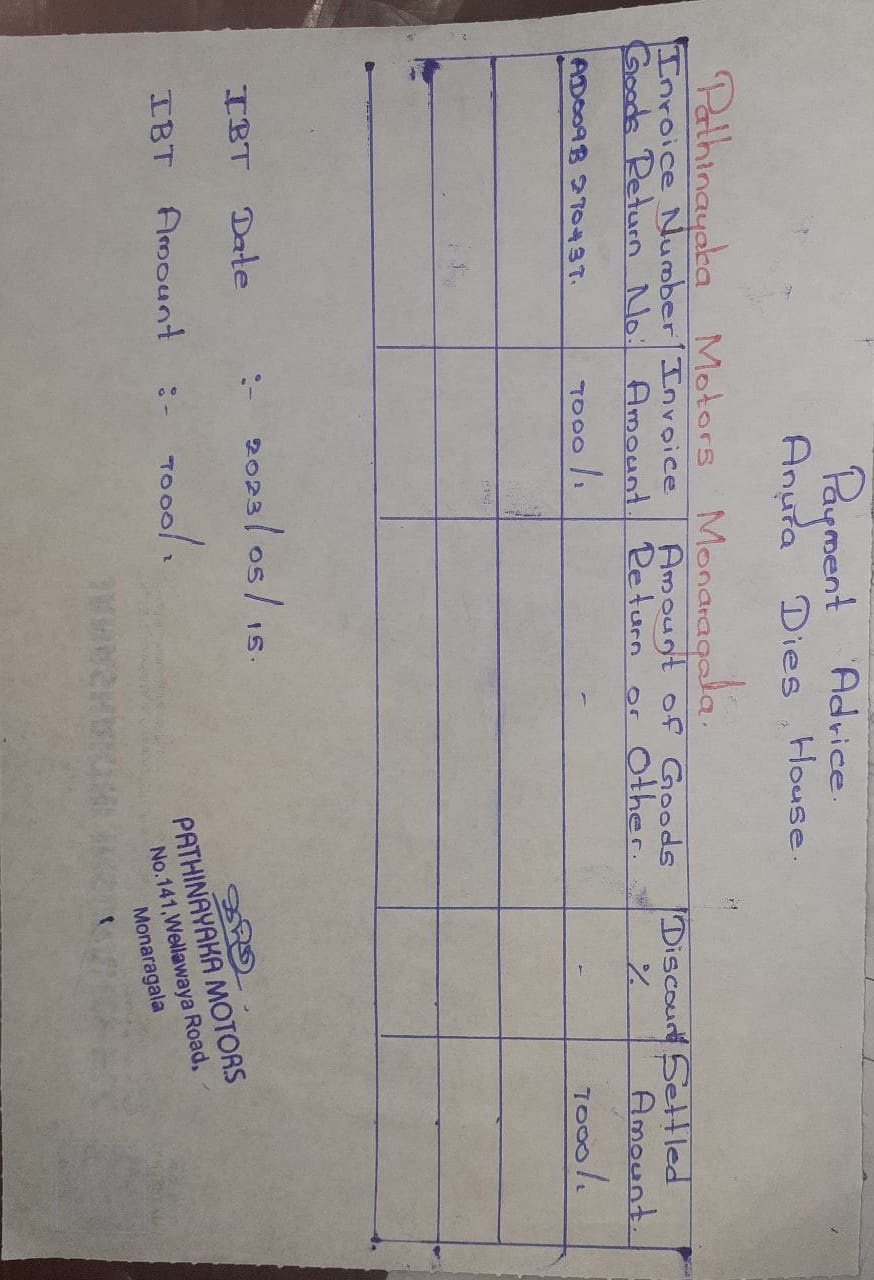 Payment Advice.
Anura Dies House.
Pathinayaka Motors Monaragala.
Invoice Number Goods Return No: | Invoice Amount. | Amount of Goods Return or Other. | Discount % | Settled Amount.
AD009B270437. | 7000/. | - | - | 7000/.
IBT Date :- 2023/05/15.
IBT Amount :- 7000/.
PATHINAYAKA MOTORS
No.141, Wellawaya Road,
Monaragala